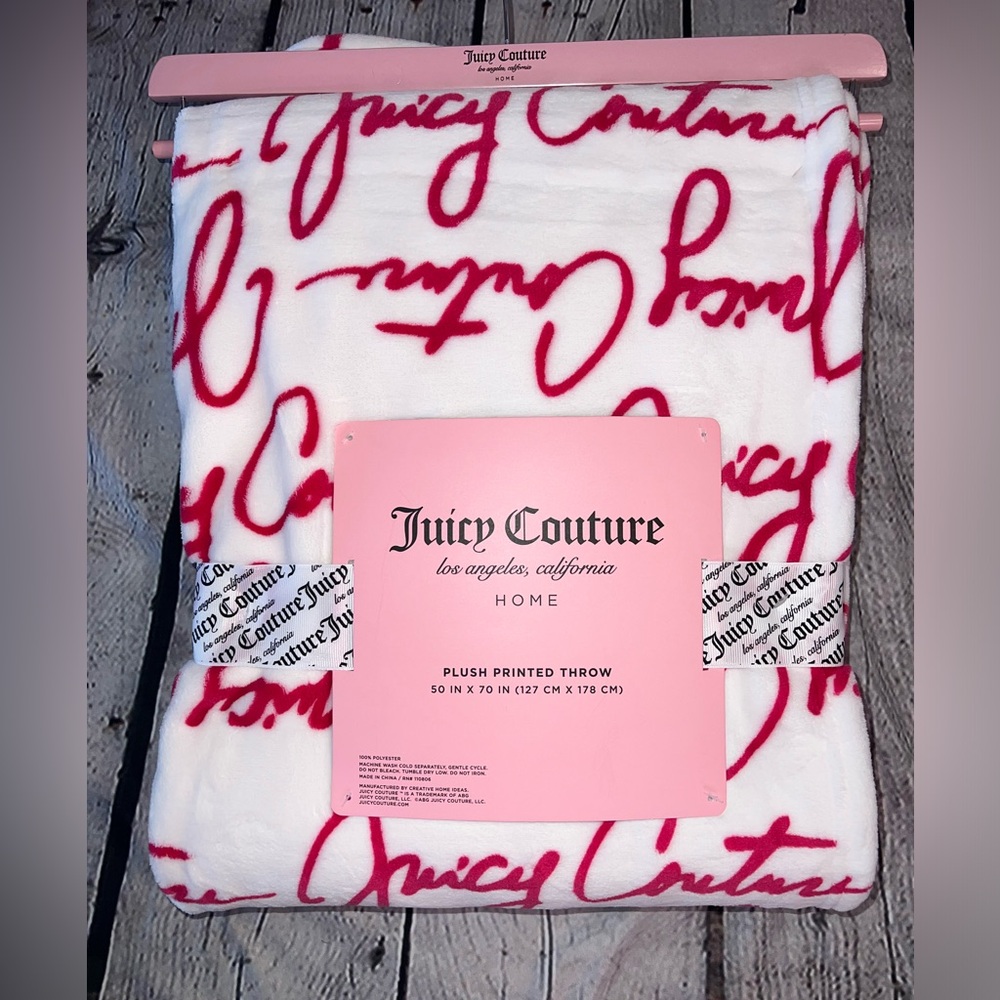 Juicy Couture
los angeles, california
HOME
Juicy Couture
Juicy Couture
Juicy Couture
los angeles, california
HOME
PLUSH PRINTED THROW
50 IN X 70 IN (127 CM X 178 CM)
100% POLYESTER
MACHINE WASH COLD SEPARATELY, GENTLE CYCLE.
DO NOT BLEACH. TUMBLE DRY LOW. DO NOT IRON.
MADE IN CHINA / RN# 110806
MANUFACTURED BY CREATIVE HOME IDEAS.
JUICY COUTURE™ IS A TRADEMARK OF ABG
JUICY COUTURE, LLC. ©ABG JUICY COUTURE, LLC.
JUICYCOUTURE.COM
Couture Juicy
los angeles, california
Juicy Couture
los angeles, california
Juicy Couture